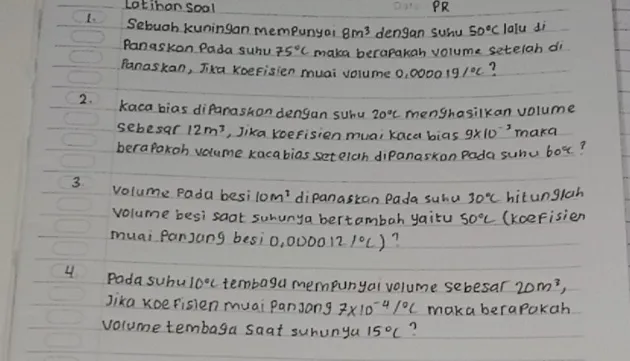 Latihan Soal
Date PR
1. Sebuah kuningan mempunyai 8m³ dengan suhu 50°C lalu di
Panaskan Pada suhu 75°C maka berapakah volume setelah di
Panaskan, Jika Koefisien muai volume 0,000019/°C ?
2. Kaca bias diPanaskan dengan suhu 20°C menghasilkan volume
sebesar 12m³, Jika Koefisien muai kaca bias 9x10⁻³ maka
beraPakah volume kaca bias setelah diPanaskan Pada suhu 60°C ?
3 volume Pada besi 10m³ diPanaskan Pada suhu 30°C hitunglah
volume besi saat suhunya bertambah yaitu 50°C (Koefisien
muai Panjang besi 0,000012/°C) ?
4 Pada suhu 10°C tembaga mempunyai volume sebesar 20m³,
Jika Koefisien muai Panjang 7x10⁻⁴/°C maka beraPakah
volume tembaga saat suhunya 15°C ?